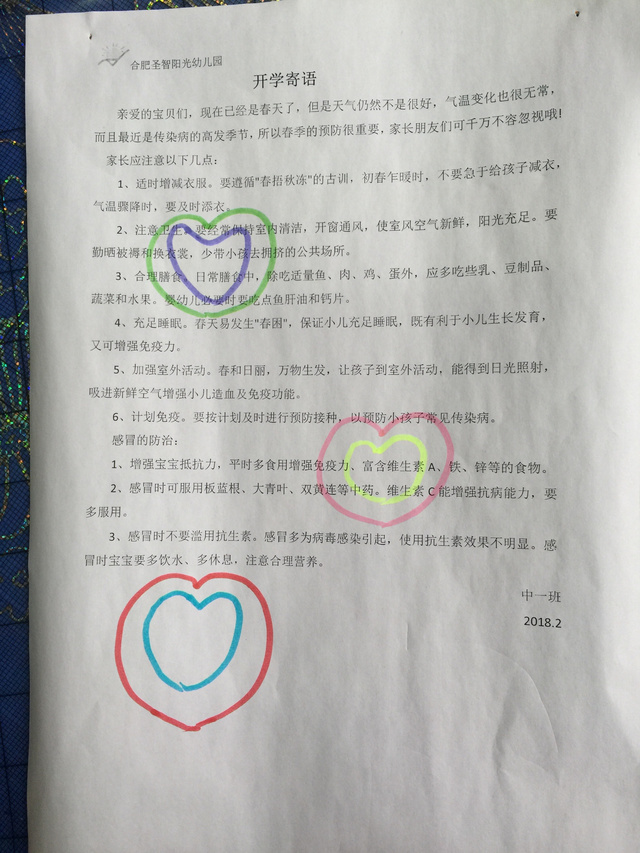 合肥圣智阳光幼儿园
开学寄语
亲爱的宝贝们，现在已经是春天了，但是天气仍然不是很好，气温变化也很无常，
而且最近是传染病的高发季节，所以春季的预防很重要，家长朋友们可千万不容忽视哦！
家长应注意以下几点：
1、适时增减衣服。要遵循"春捂秋冻"的古训，初春乍暖时，不要急于给孩子减衣，
气温骤降时，要及时添衣。
2、注意卫生。要经常保持室内清洁，开窗通风，使室风空气新鲜，阳光充足。要
勤晒被褥和换衣裳，少带小孩去拥挤的公共场所。
3、合理膳食。日常膳食中，除吃适量鱼、肉、鸡、蛋外，应多吃些乳、豆制品、
蔬菜和水果。婴幼儿必要时要吃点鱼肝油和钙片。
4、充足睡眠。春天易发生"春困"，保证小儿充足睡眠，既有利于小儿生长发育，
又可增强免疫力。
5、加强室外活动。春和日丽，万物生发，让孩子到室外活动，能得到日光照射，
吸进新鲜空气增强小儿造血及免疫功能。
6、计划免疫。要按计划及时进行预防接种，以预防小孩子常见传染病。
感冒的防治：
1、增强宝宝抵抗力，平时多食用增强免疫力、富含维生素A、铁、锌等的食物。
2、感冒时可服用板蓝根、大青叶、双黄连等中药。维生素C能增强抗病能力，要
多服用。
3、感冒时不要滥用抗生素。感冒多为病毒感染引起，使用抗生素效果不明显。感
冒时宝宝要多饮水、多休息，注意合理营养。
中一班
2018.2